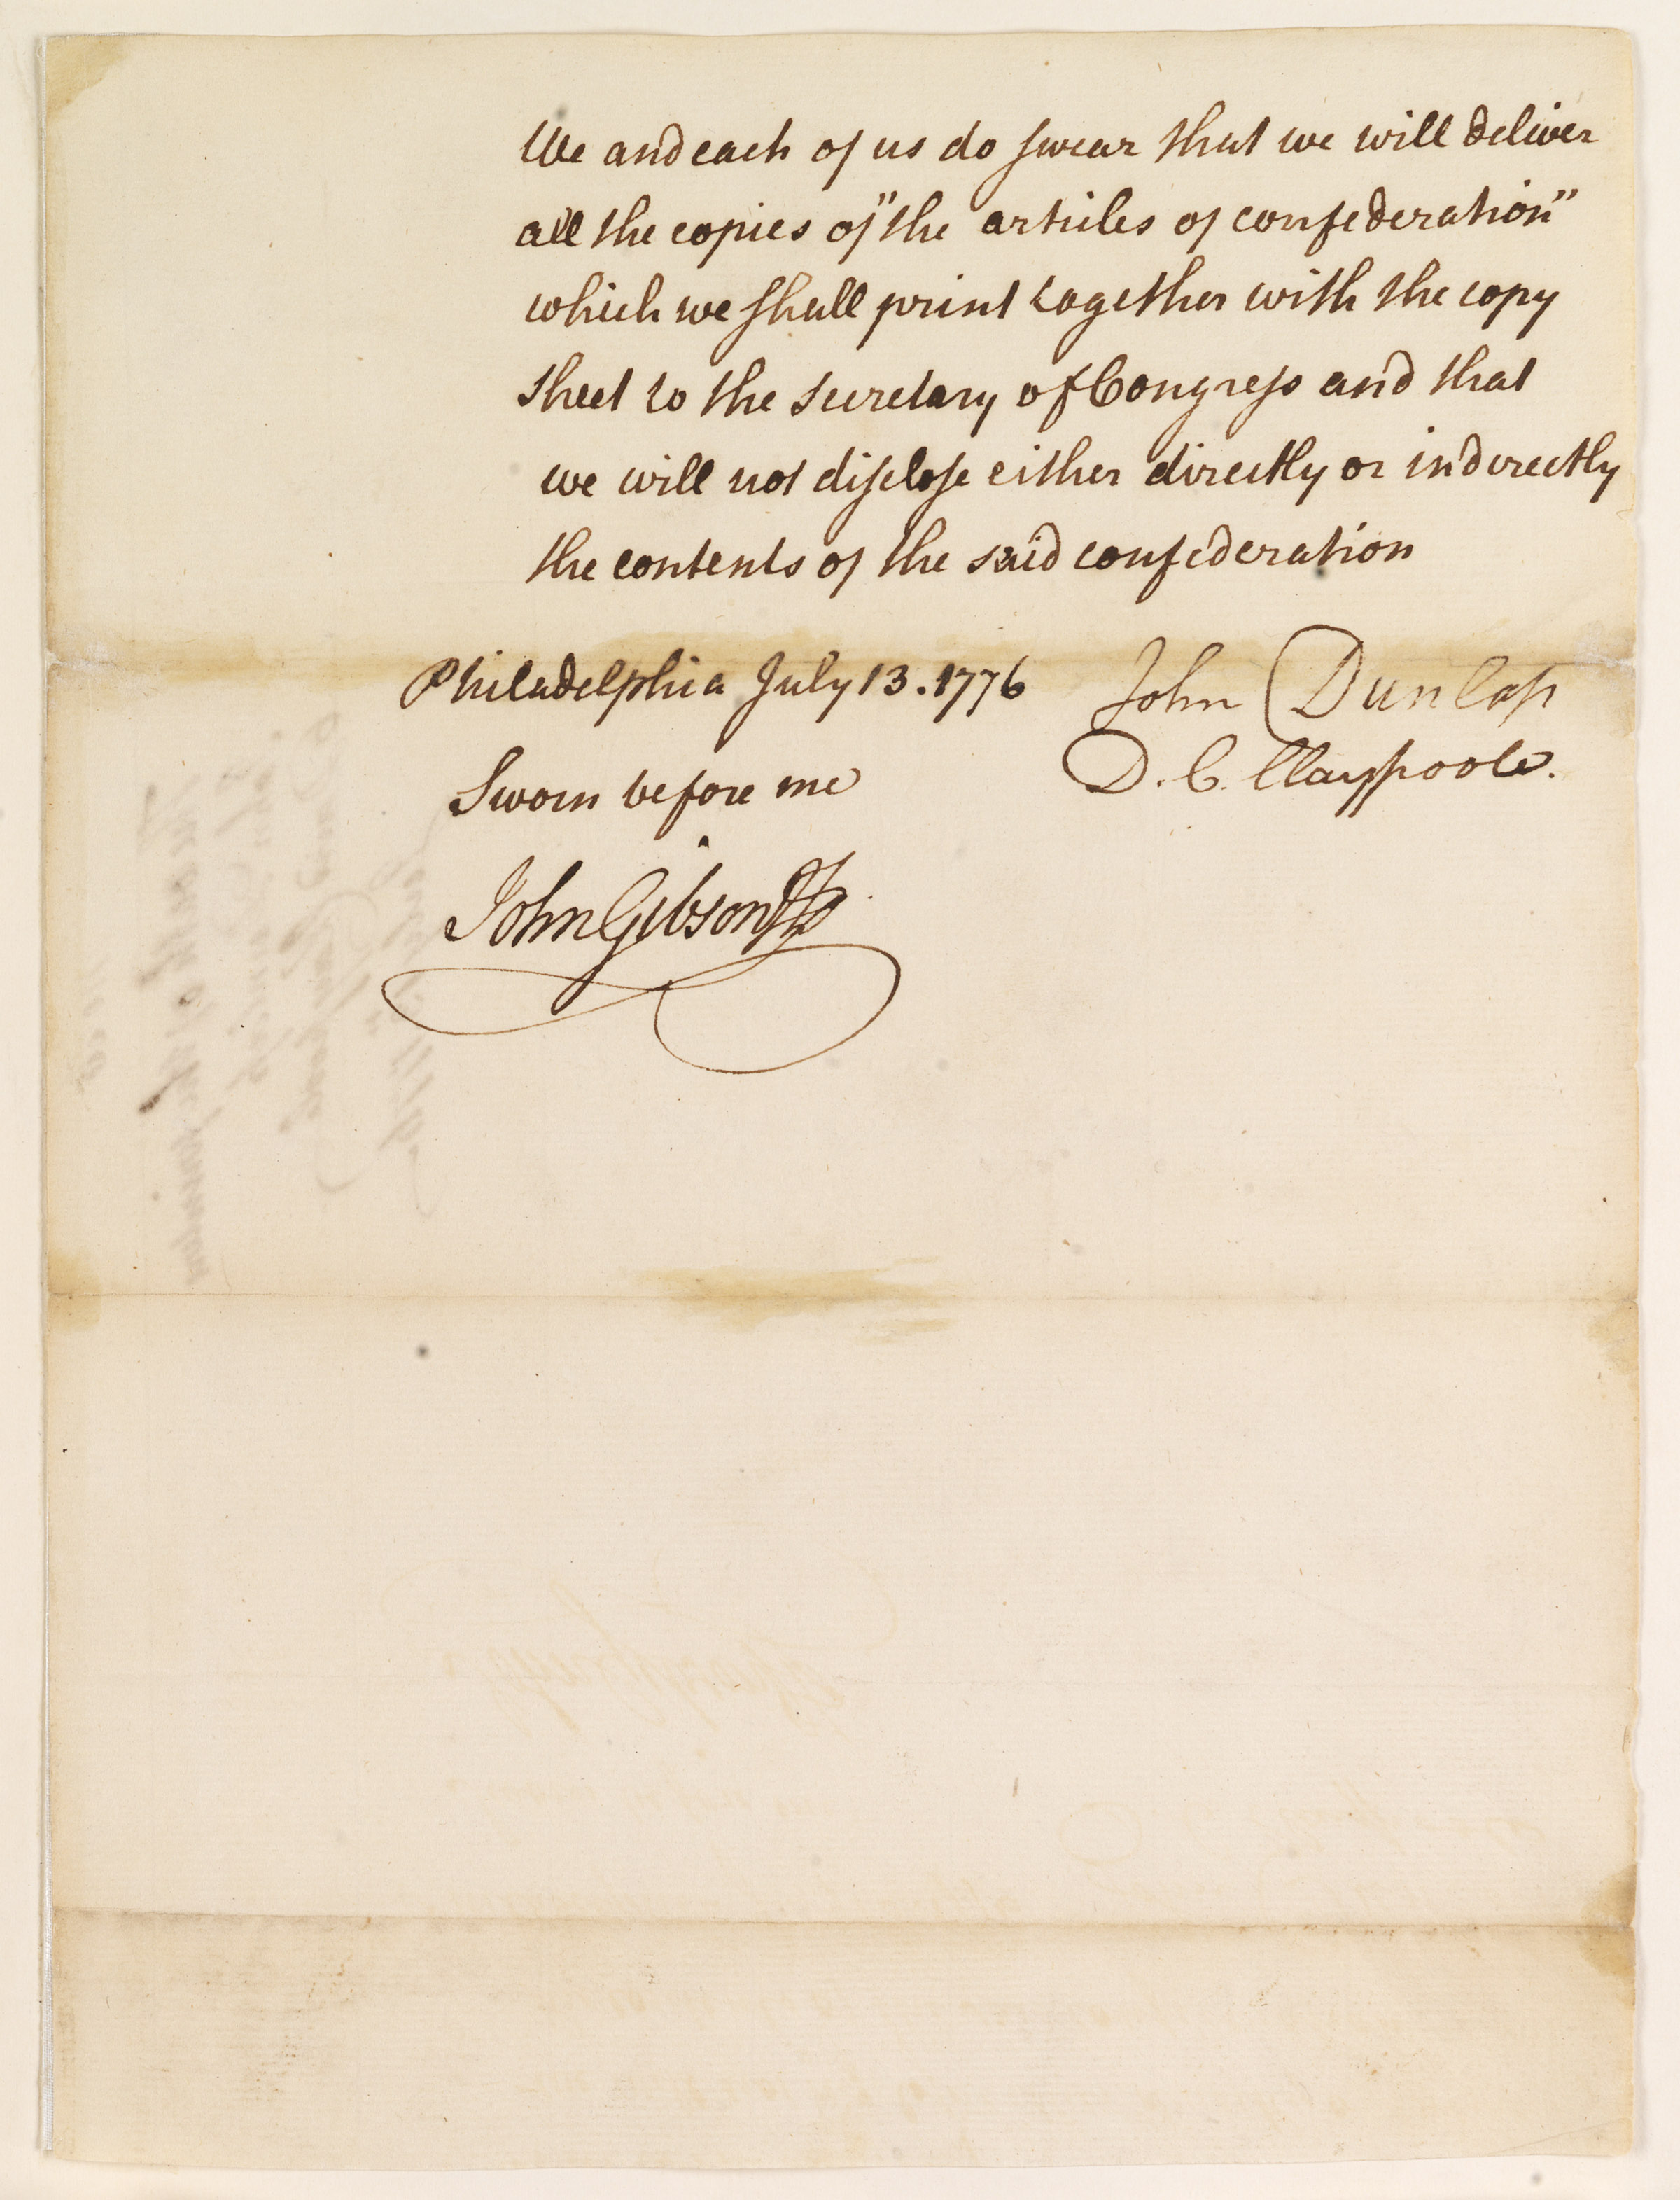 We and each of us do swear that we will deliver
all the copies of "the articles of confederation"
which we shall print together with the copy
sheet to the secretary of Congress and that
we will not disclose either directly or indirectly
the contents of the said confederation
Philadelphia July 13. 1776 John Dunlap
Sworn before me D. C. Claypoole.
John Gibson